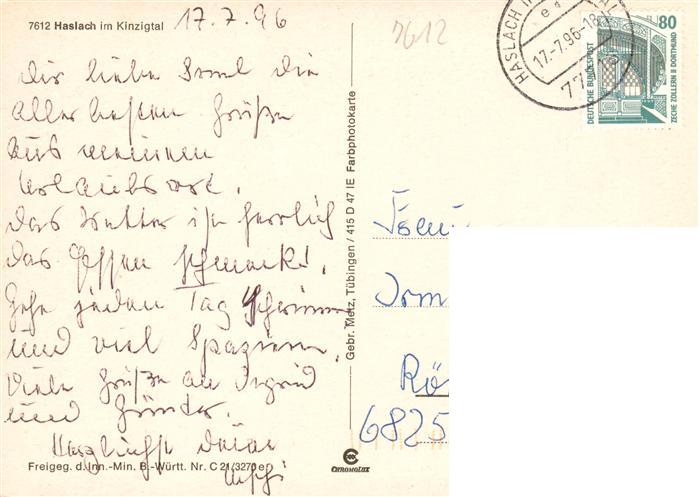 7612 Haslach im Kinzigtal
17.7.96
7612
HASLACH IM
17.-7.96-18
77
80
DEUTSCHE BUNDESPOST
ZECHE ZOLLERN II DORTMUND
Dir liebe die
aller besten Grüße
aus meinem
Urlaubsort.
das Wetter ist herrlich
das Essen schmeckt.
Gehe jeden Tag schwimmen
und viel Spazieren.
Viele Grüße an Ingrid
und Günter.
Herzlichst deine
Uschi
Freigeg. d. Inn.-Min. B.-Württ. Nr. C 21/3270 e
Gebr. Metz, Tübingen / 415 D 47 IE Farbphotokarte
CHROMOLUX
Irm
Rö
6825